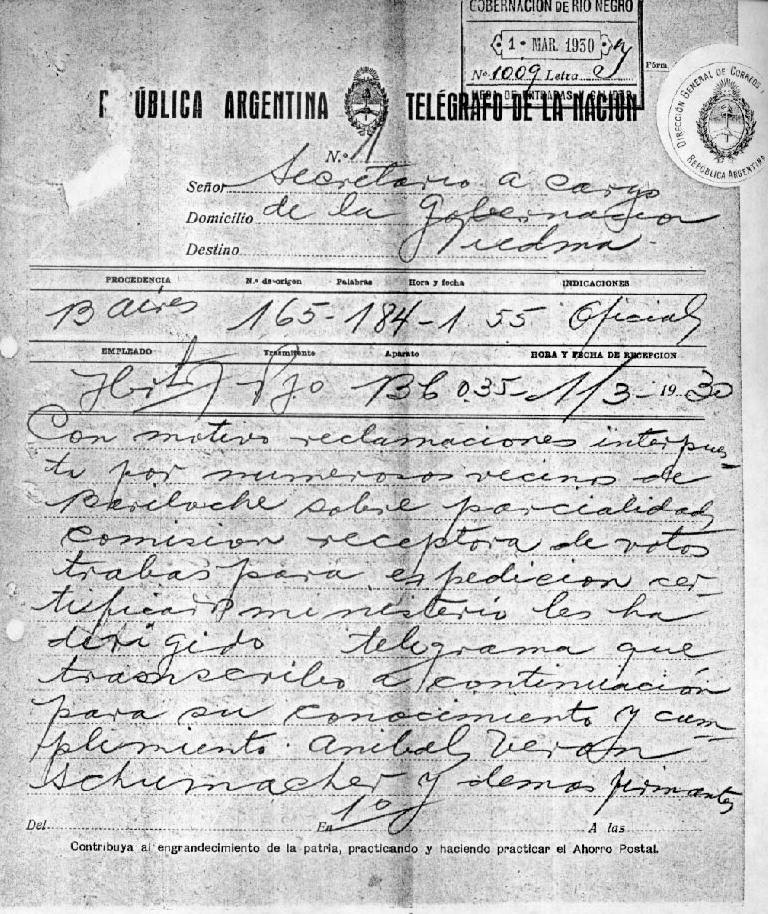 GOBERNACIÓN DE RIO NEGRO
1 - MAR. 1930
Nº 1009 Letra
MESA DE ENTRADAS Y SALIDAS
Fórm.
DIRECCIÓN GENERAL DE CORREOS
REPÚBLICA ARGENTINA
R PÚBLICA ARGENTINA TELÉGRAFO DE LA NACIÓN
N.º 1
Señor Secretario a cargo
Domicilio de la Gobernacion
Destino Viedma
PROCEDENCIA N.º de origen Palabras Hora y fecha INDICACIONES
B aires 165-184-1 55 Oficial
EMPLEADO Trasmitente Aparato HORA Y FECHA DE RECEPCION
B6 035- 1/3- 1930
Con motivo reclamaciones interpues-
ta por numerosos vecinos de
Bariloche sobre parcialidad
comision receptora de votos
trabas para espedicion cer-
tificado ministerio les ha
dirigido telegrama que
transcribo a continuación
para su conocimiento y cum-
plimiento. Anibal Veron
Schumacher y demas firmantes
Del En 1º A las
Contribuya al engrandecimiento de la patria, practicando y haciendo practicar el Ahorro Postal.